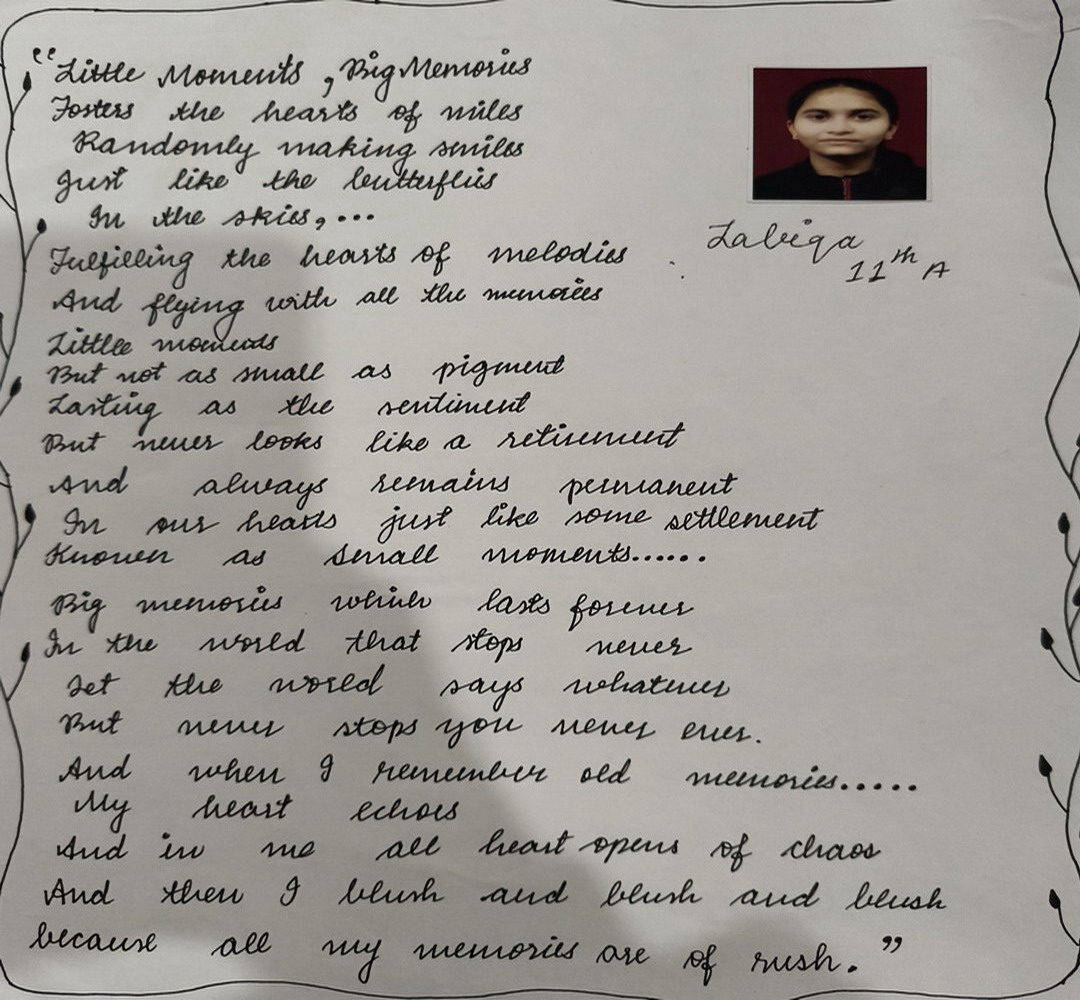 "Little Moments, Big Memories
Fosters the hearts of miles
Randomly making smiles
Just like the butterflies
In the skies,...
Fulfilling the hearts of melodies
And flying with all the memories
Little moments
But not as small as pigment
Lasting as the sentiment
But never looks like a retirement
And always remains permanent
In our hearts just like some settlement
Known as small moments......
Big memories which lasts forever
In the world that stops never
Let the world says whatever
But never stops you never ever.
And when I remember old memories.....
My heart echoes
And in me all heart opens of chaos
And then I blush and blush and blush
because all my memories are of rush."
Labiqa
11th A